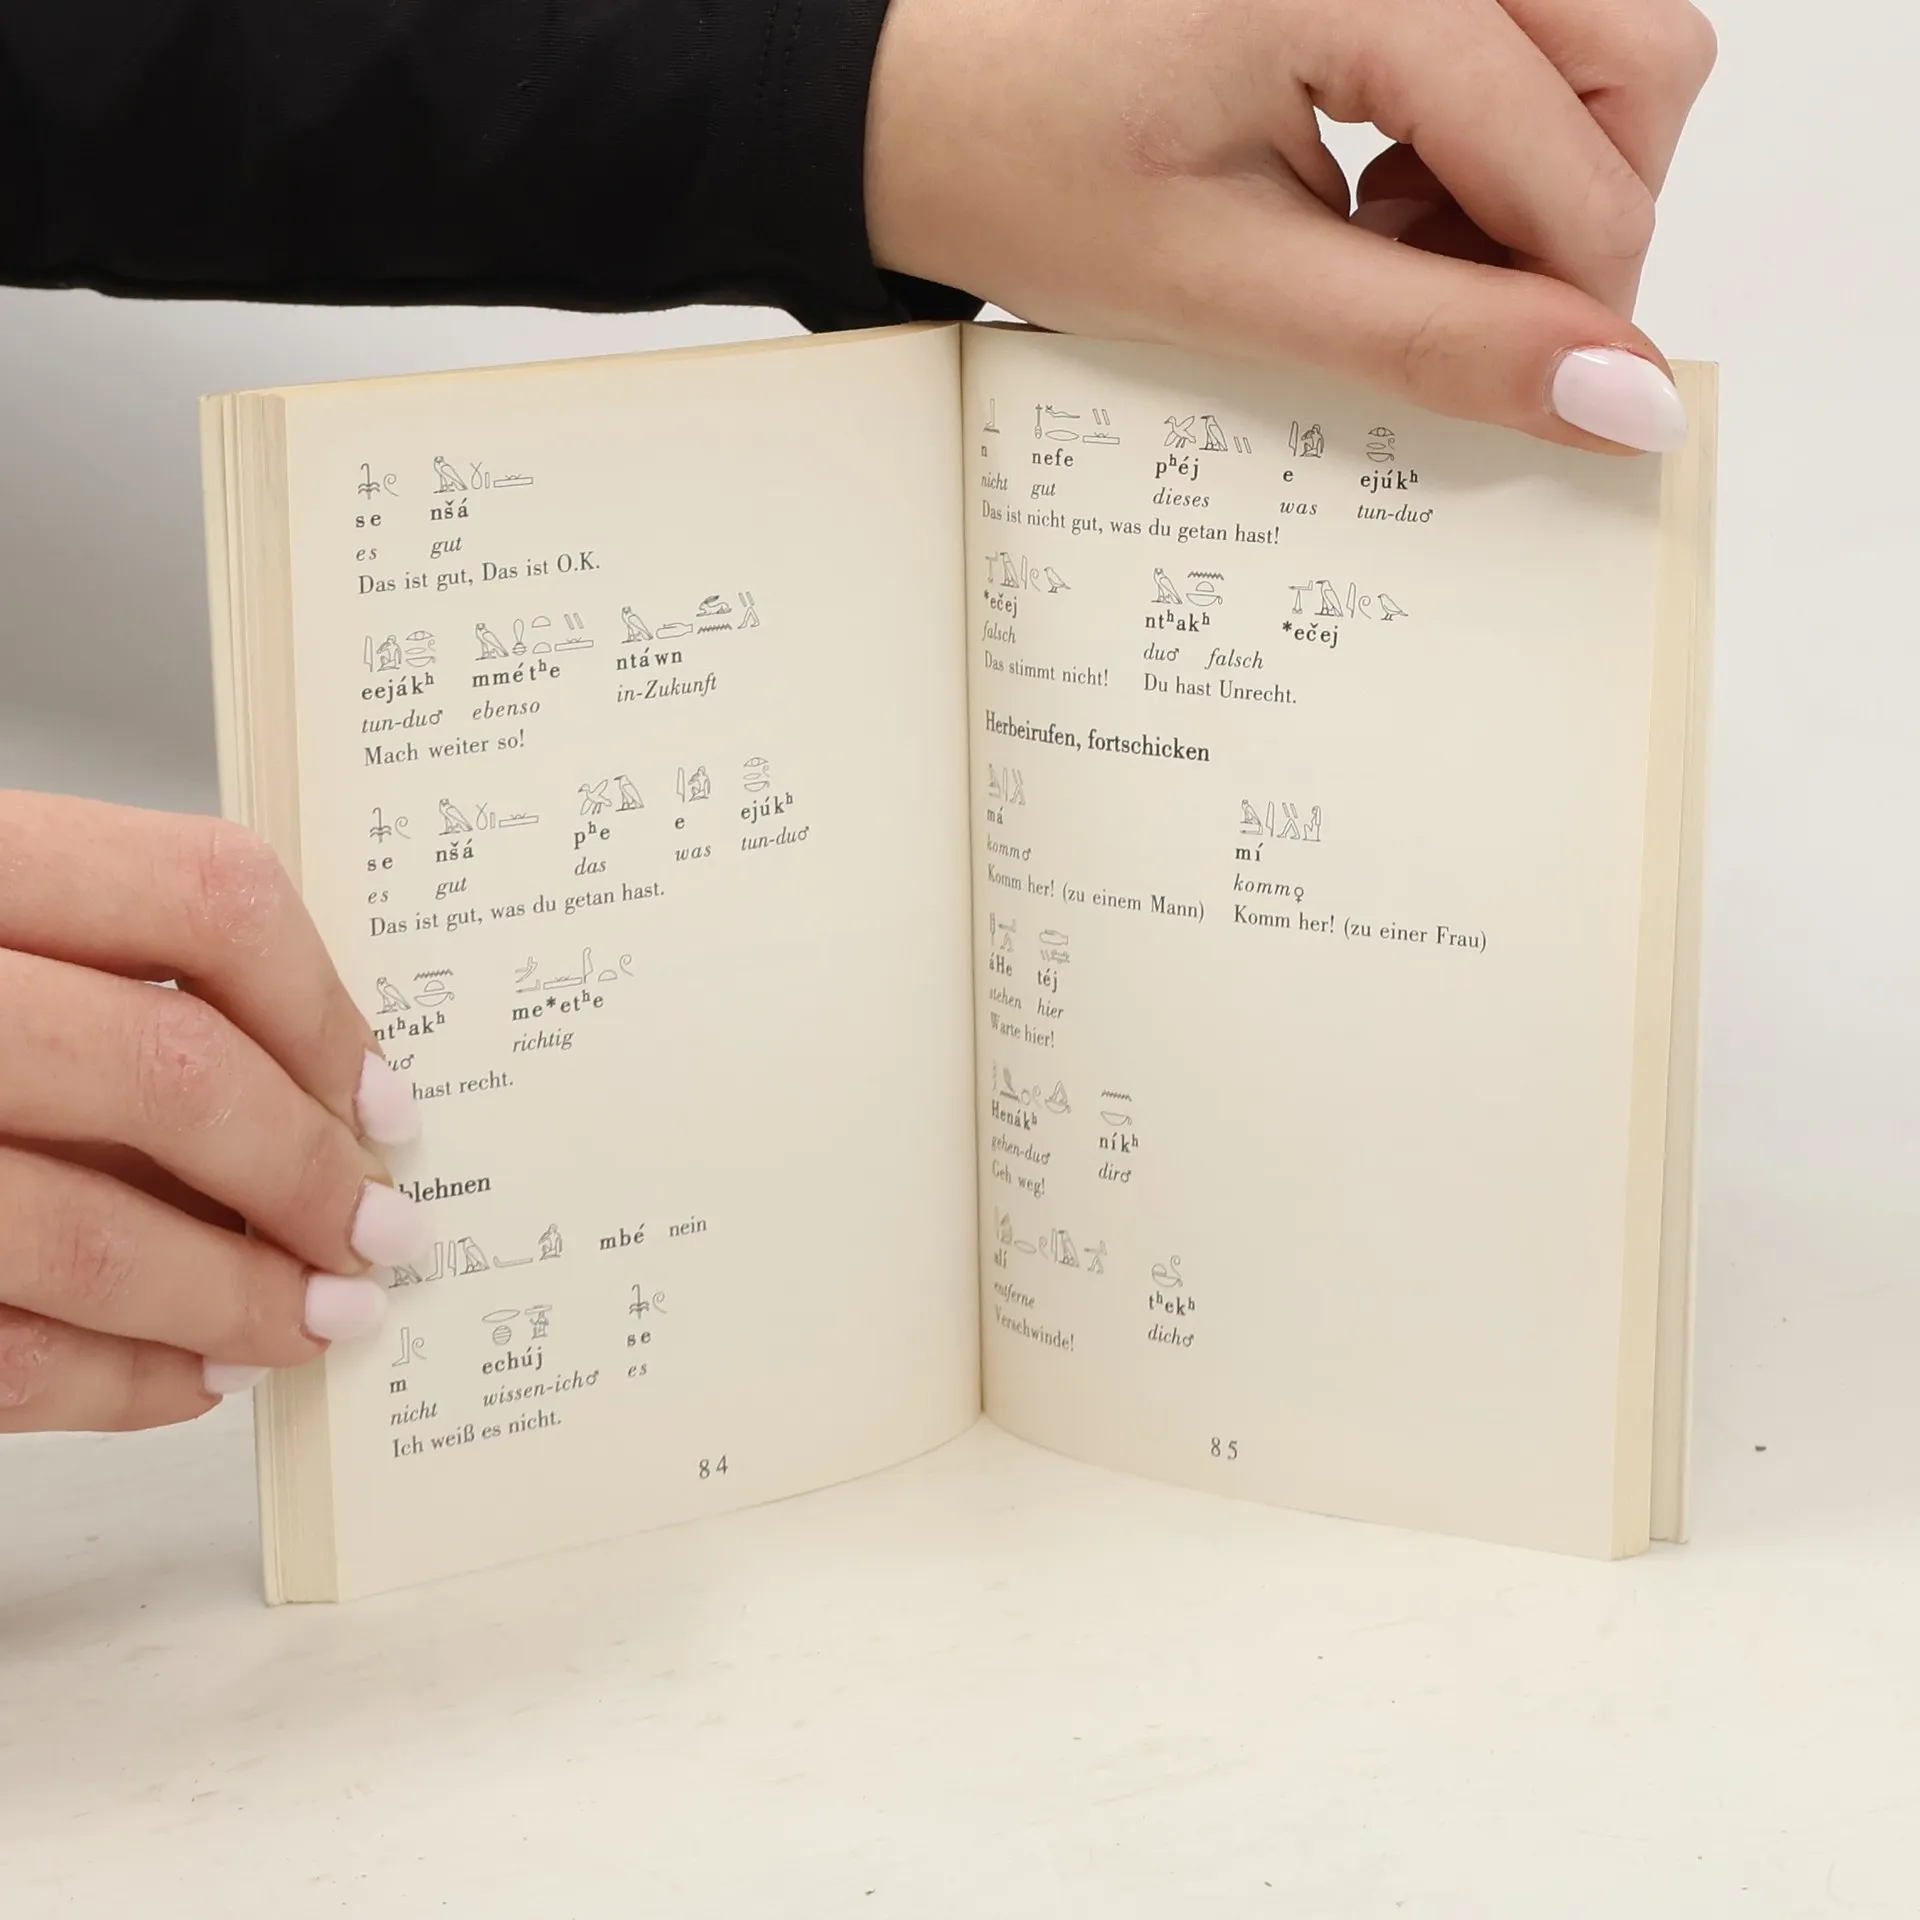 se nšá
es gut
Das ist gut, Das ist O.K.
eejákʰ mmétʰe ntáwn
tun-du♂ ebenso in-Zukunft
Mach weiter so!
se nšá pʰe e ejúkʰ
es gut das was tun-du♂
Das ist gut, was du getan hast.
ntʰakʰ me*etʰe
richtig
hast recht.
blehnen
mbé nein
m echúj se
nicht wissen-ich♂ es
Ich weiß es nicht.
84
n nefe pʰéj e ejúkʰ
nicht gut dieses was tun-du♂
Das ist nicht gut, was du getan hast!
*ečej ntʰakʰ *ečej
falsch du♂ falsch
Das stimmt nicht! Du hast Unrecht.
Herbeirufen, fortschicken
má mí
komm♂ komm♀
Komm her! (zu einem Mann) Komm her! (zu einer Frau)
áHe téj
stehen hier
Warte hier!
Henákʰ níkʰ
gehen-du♂ dir♂
Geh weg!
alí tʰekʰ
entferne dich♂
Verschwinde!
85